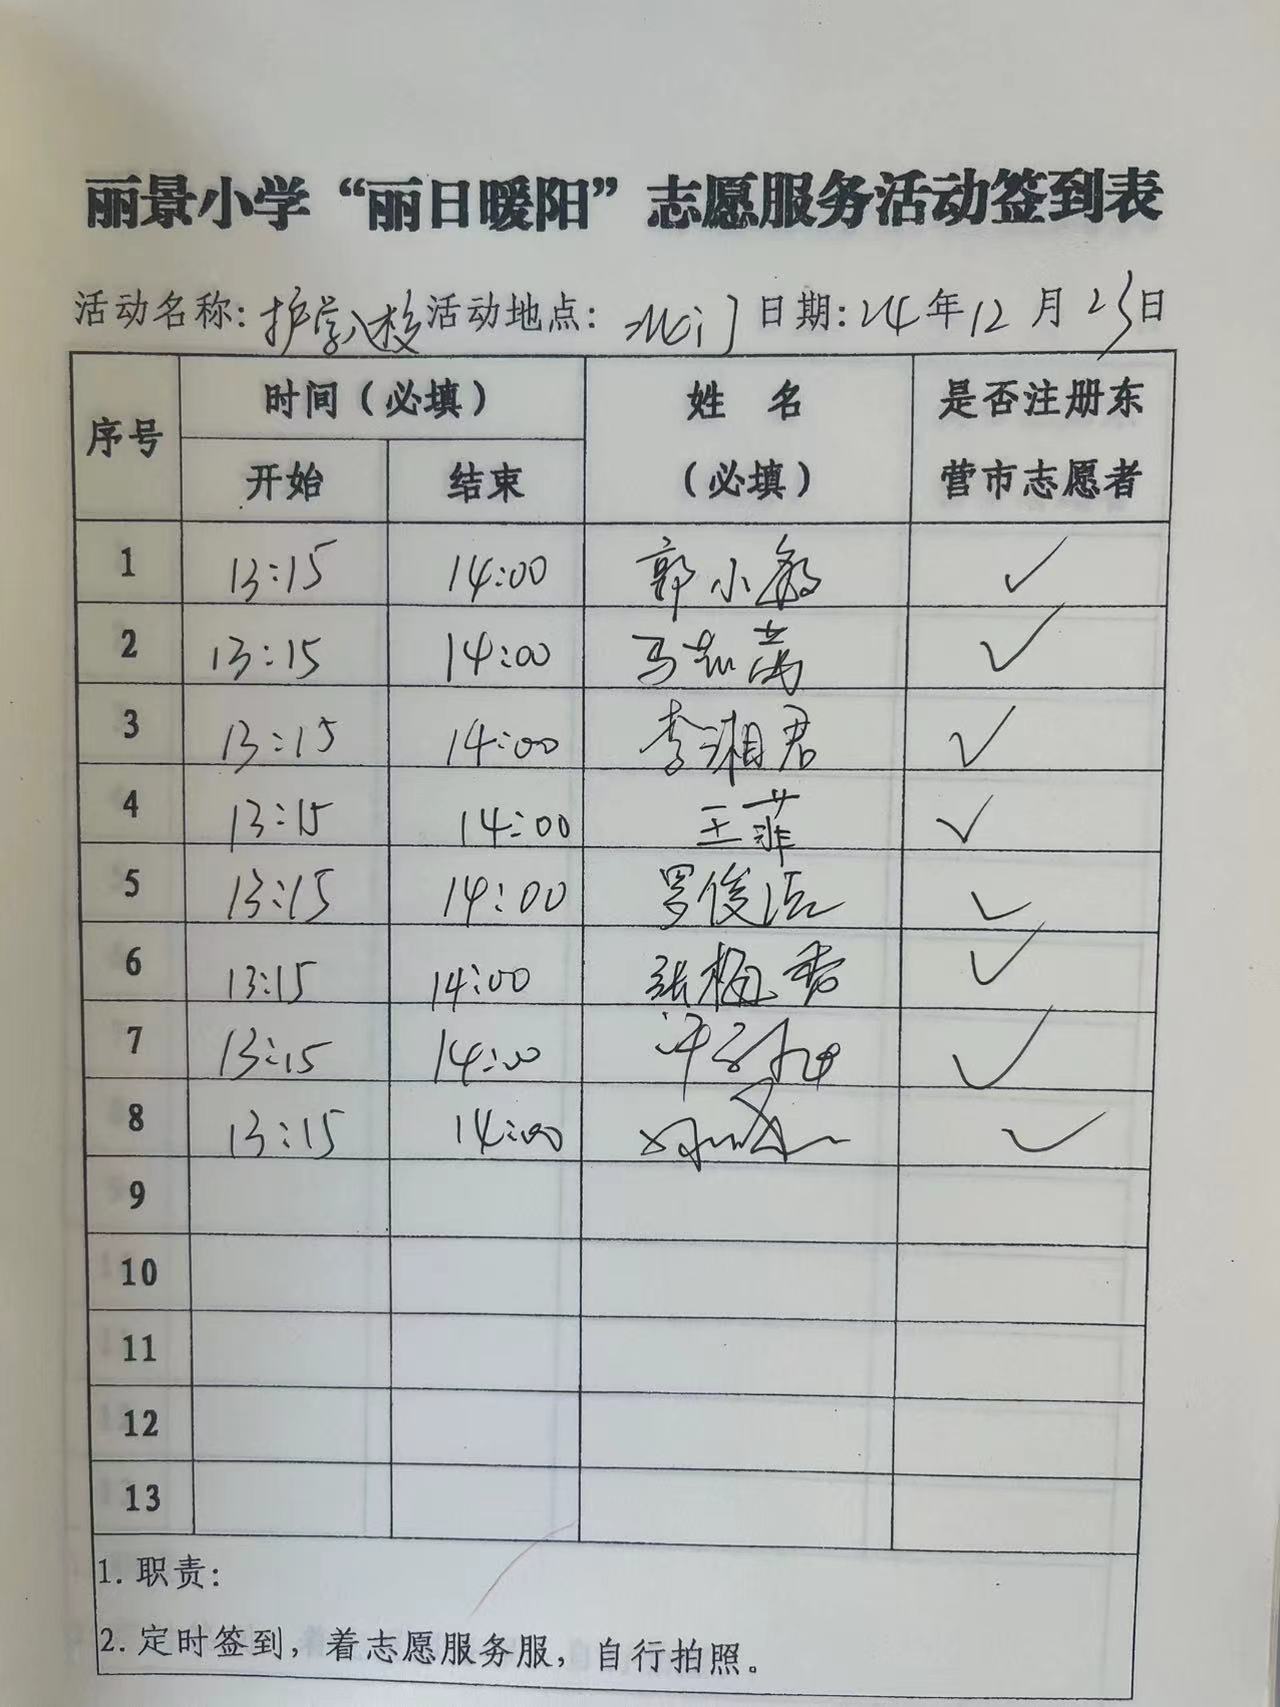 丽景小学“丽日暖阳”志愿服务活动签到表
活动名称:护学入校 活动地点: 北门 日期:24年12月23日
序号 时间(必填) 姓 名 (必填) 是否注册东营市志愿者
开始 结束
1 13:15 14:00 郭小敏 ✓
2 13:15 14:00 马 ✓
3 13:15 14:00 李湘君 ✓
4 13:15 14:00 王菲 ✓
5 13:15 14:00 罗俊 ✓
6 13:15 14:00 张梅香 ✓
7 13:15 14:00 ✓
8 13:15 14:00 ✓
9
10
11
12
13
1. 职责:
2. 定时签到,着志愿服务服,自行拍照。